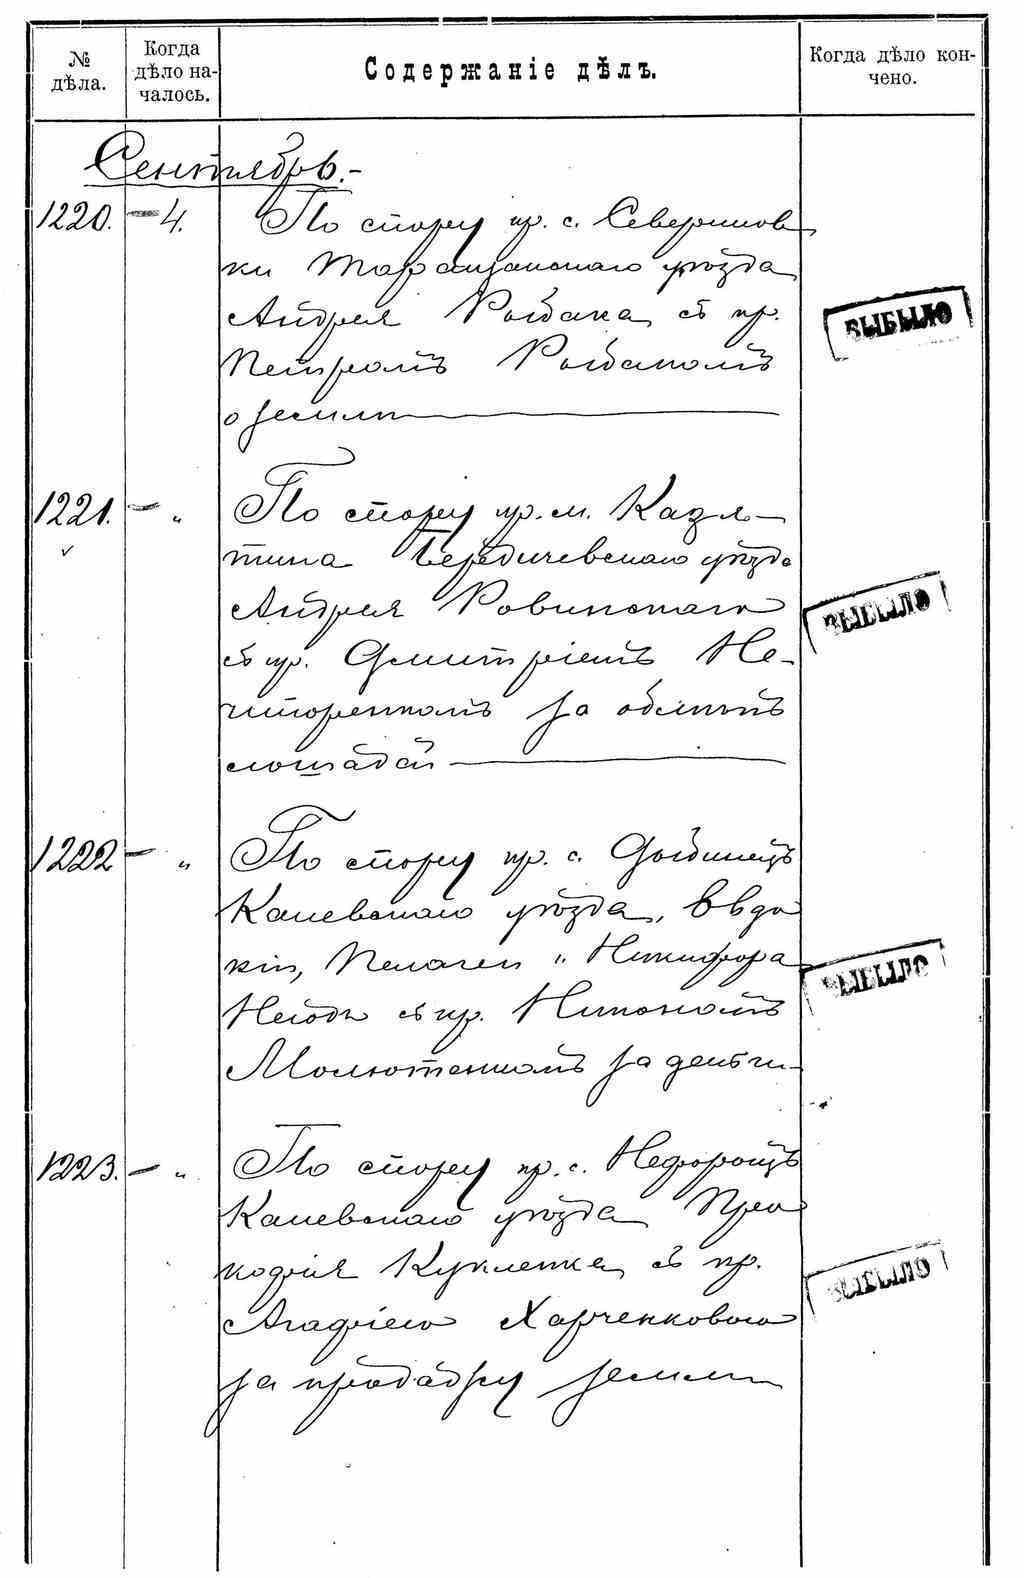 № дѣла.
Когда дѣло на-
чалось.
Содержаніе дѣлъ.
Когда дѣло кон-
чено.
Сентябрь.-
1220. - 4. По спору кр. с. Северинов
ки Таращанскаго уѣзда
Андрея Рыбака съ кр.
Петромъ Рыбакомъ
о землѣ
ВЫБЫЛО
1221. - „ По спору кр. м. Казя-
тина Бердичевскаго уѣзда
Андрея Ровинскаго
съ кр. Дмитріемъ Не-
чипоренкомъ за обмѣнъ
лошадей
ВЫБЫЛО
1222 - „ По спору кр. с. Дыбинецъ
Каневскаго уѣзда, Евдо
кіи, Пелагеи и Никифора
съ кр. Никономъ
за деньги
ВЫБЫЛО
1223. - „ По спору кр. с.
Каневскаго уѣзда Про
кофія Кукленка съ кр.
Агафіею Харченковою
за продажу земли
ВЫБЫЛО